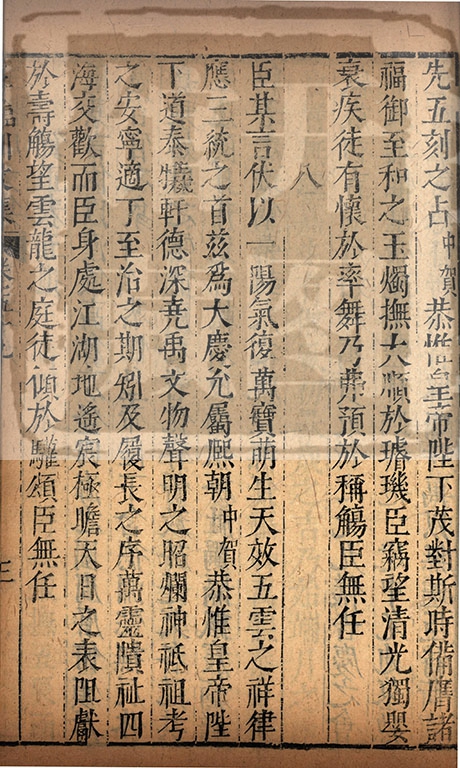 先五刻之占中賀恭惟皇帝陛下茂對斯時備膺諸
福御至和之玉燭撫大順於璿璣臣竊望清光獨嬰
衰疾徒有懷於率舞乃弗預於稱觴臣無任
八
臣某言伏以一陽氣復萬寶萌生天效五雲之祥律
應三統之首茲爲大慶允屬熙朝中賀恭惟皇帝陛
下道泰犧軒德深堯禹文物聲明之昭爛神祇祖考
之安寧適丁至治之期矧及履長之序萬靈隤祉四
海交歡而臣身處江湖地遙宸極瞻天日之表阻獻
於壽觴望雲龍之庭徒傾於驩頌臣無任